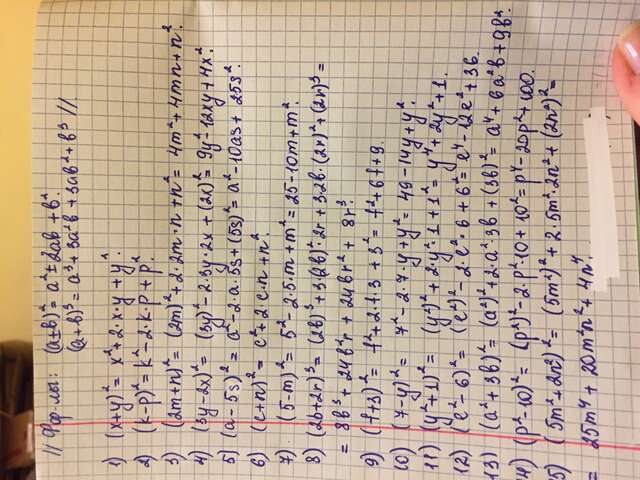 // Фор-лы: (a±b)² = a² ± 2ab + b².
(a+b)³ = a³ + 3a²b + 3ab² + b³ //
1) (x+y)² = x² + 2·x·y + y².
2) (k-p)² = k² - 2·k·p + p².
3) (2m+n)² = (2m)² + 2·2m·n + n² = 4m² + 4mn + n².
4) (3y-2x)² = (3y)² - 2·3y·2x + (2x)² = 9y² - 12xy + 4x².
5) (a-5s)² = a² - 2·a·5s + (5s)² = a² - 10as + 25s².
6) (c+n)² = c² + 2·c·n + n².
7) (5-m)² = 5² - 2·5·m + m² = 25 - 10m + m².
8) (2b+2r)³ = (2b)³ + 3·(2b)²·2r + 3·2b·(2r)² + (2r)³ =
= 8b³ + 24b²r + 24br² + 8r³.
9) (f+3)² = f² + 2·f·3 + 3² = f² + 6f + 9.
10) (7-y)² = 7² - 2·7·y + y² = 49 - 14y + y².
11) (y²+1)² = (y²)² + 2·y²·1 + 1² = y⁴ + 2y² + 1.
12) (e²-6)² = (e²)² - 2·e²·6 + 6² = e⁴ - 12e² + 36.
13) (a²+3b)² = (a²)² + 2·a²·3b + (3b)² = a⁴ + 6a²b + 9b².
14) (p²-10)² = (p²)² - 2·p²·10 + 10² = p⁴ - 20p² + 100.
5) (5m²+2n²)² = (5m²)² + 2·5m²·2n² + (2n²)² =
= 25m⁴ + 20m²n² + 4n⁴.